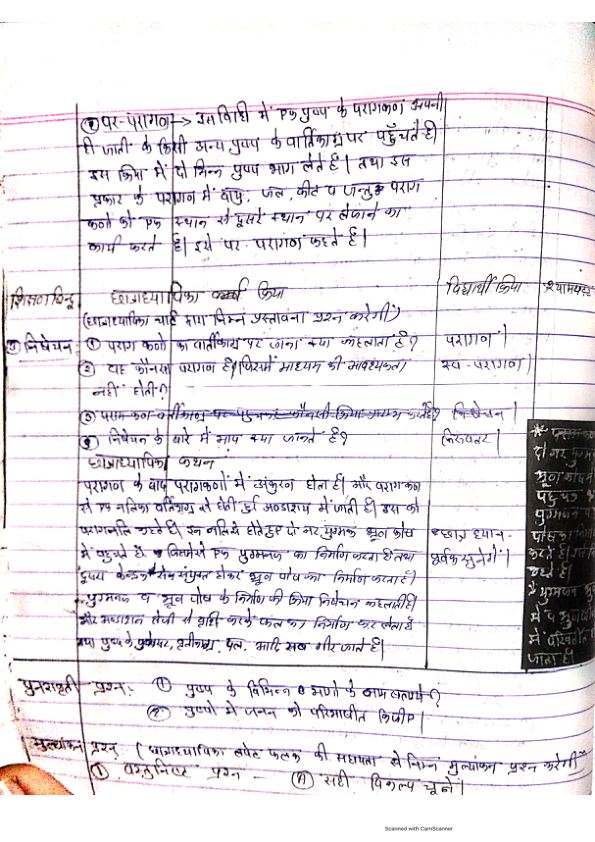 ② पर-परागण → इस विधी में एक पुष्प के परागकण अपनी
ही जाती के किसी अन्य पुष्प के वार्तिकाग्र पर पहुँचते है।
इस क्रिया में दो भिन्न पुष्प भाग लेते है। तथा इस
प्रकार के परागण में वायु, जल, कीट व जन्तु पराग
कणो को एक स्थान से दूसरे स्थान पर लेजाने का
कार्य करते है। इसे पर-परागण कहते है।
शिक्षण बिन्दू छात्राध्यापिका क्रिया विद्यार्थी क्रिया श्यामपट्ट
(छात्राध्यापिका चार्ट द्वारा निम्न प्रस्तावना प्रश्न करेगी)
निषेचन ① पराग कणो का वार्तीकाग्र पर जाना क्या कहलाता है? परागण।
② वह कौनसा परागण है जिसमें माध्यम की आवश्यकता स्व-परागण।
नहीं होती?
③ निषेचन।
निषेचन के बारे में आप क्या जानते है? निरुत्तर।
छात्राध्यापिका कथन
परागण के बाद परागकणों में अंकुरण होता है। और परागकण
से एक नलिका वर्तिकाग्र से होती हुई अण्डाशय में जाती है। इस को
परागनलि कहते है। इस नलि से होते हुए दो नर युग्मक भ्रूण कोष छात्र ध्यान
में पहुचते है। एक युग्मनज का निर्माण करता है तथा पूर्वक सुनेगें।
भ्रूण पोष का निर्माण करता है।
युग्मनज व भ्रूण पोष के निर्माण की क्रिया निषेचन कहलाती है।
और अण्डाशय तेजी से वृद्धि करके फल का निर्माण कर लेता है
तथा पुष्प के पुंकेसर, वृतीकाग्र, दल, आदि सब गीर जाते है।
पुनरावृती प्रश्न:- ① पुष्प के विभिन्न भागो के नाम बताये?
② पुष्पो में जनन को परिभाषीत किजीए।
मुल्यांकन प्रश्न (छात्राध्यापिका लपेट फलक की सहायता से निम्न मुल्यांकन प्रश्न करेगी)
① वस्तुनिष्ट प्रश्न - (A) सही विकल्प चूने।
Scanned with CamScanner